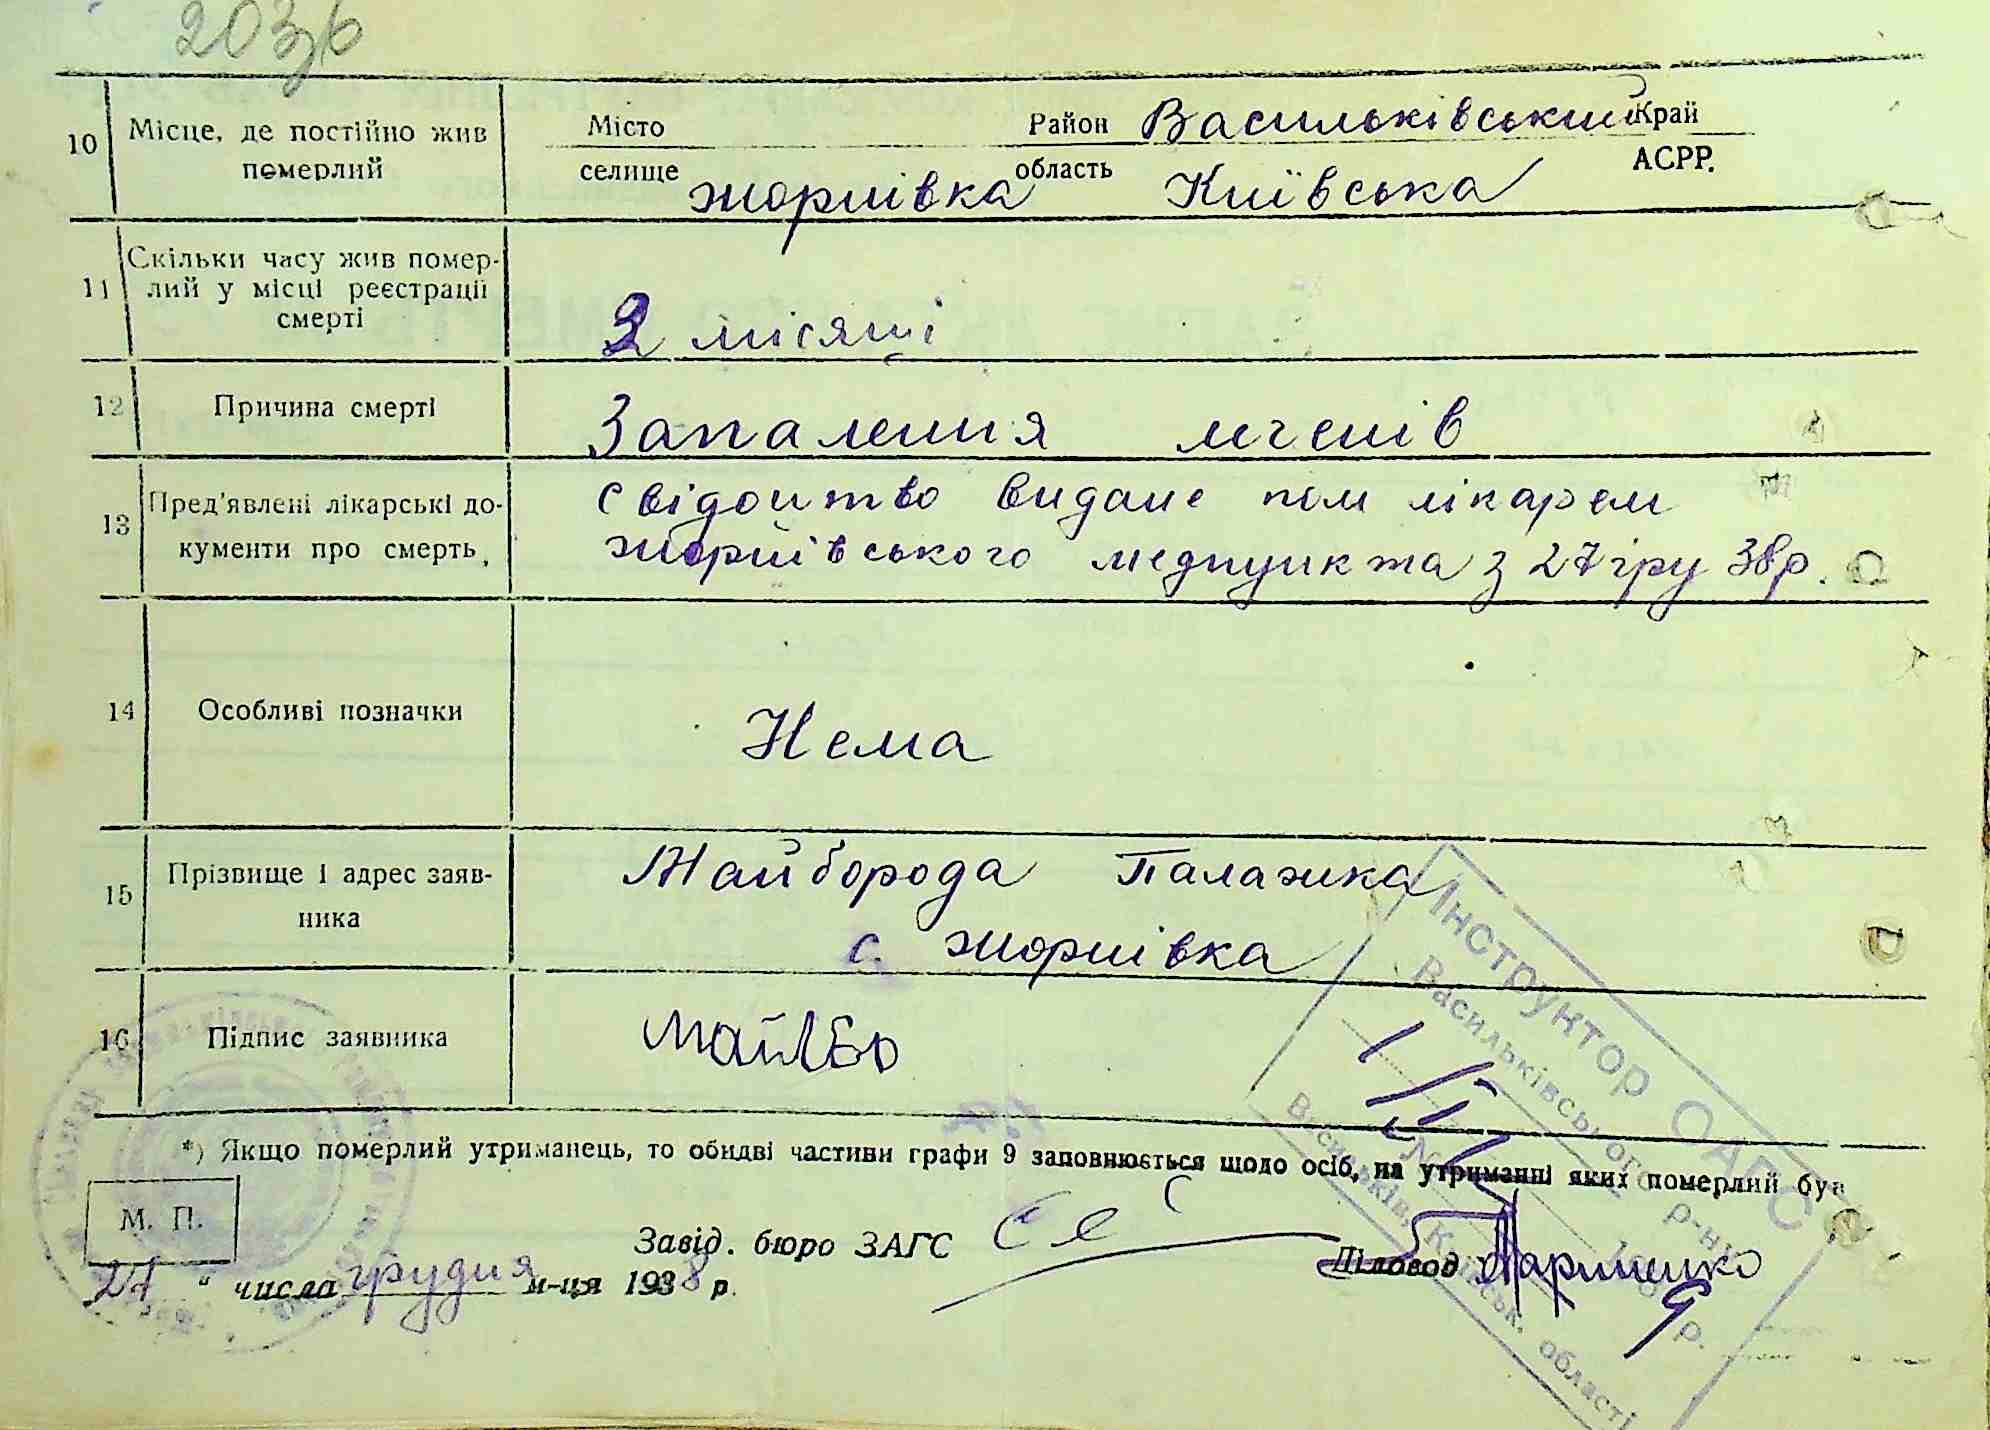 203зв
10 Місце, де постійно жив померлий
Місто Район Васильківський Край
селище Жорнівка область Київська АСРР.
11 Скільки часу жив помер-
лий у місці реєстрації
смерті
2 місяці
12 Причина смерті Запалення легенів
13 Пред'явлені лікарські до-
кументи про смерть,
Свідоцтво видане пом лікарем
Жорнівського медпункта з 27 гру 38 р.
14 Особливі позначки Нема
15 Прізвище і адрес заяв-
ника
Майборода Палажка
с. Жорнівка
16 Підпис заявника
*) Якщо померлий утриманець, то обидві частини графи 9 заповнюється щодо осіб, на утриманні яких померлий був
М. П.
Завід. бюро ЗАГС Діловод
" числа грудня м-ця 1938 р.
Інструктор ОАГС
Васильківського р-ну
Васильків, Київськ. області